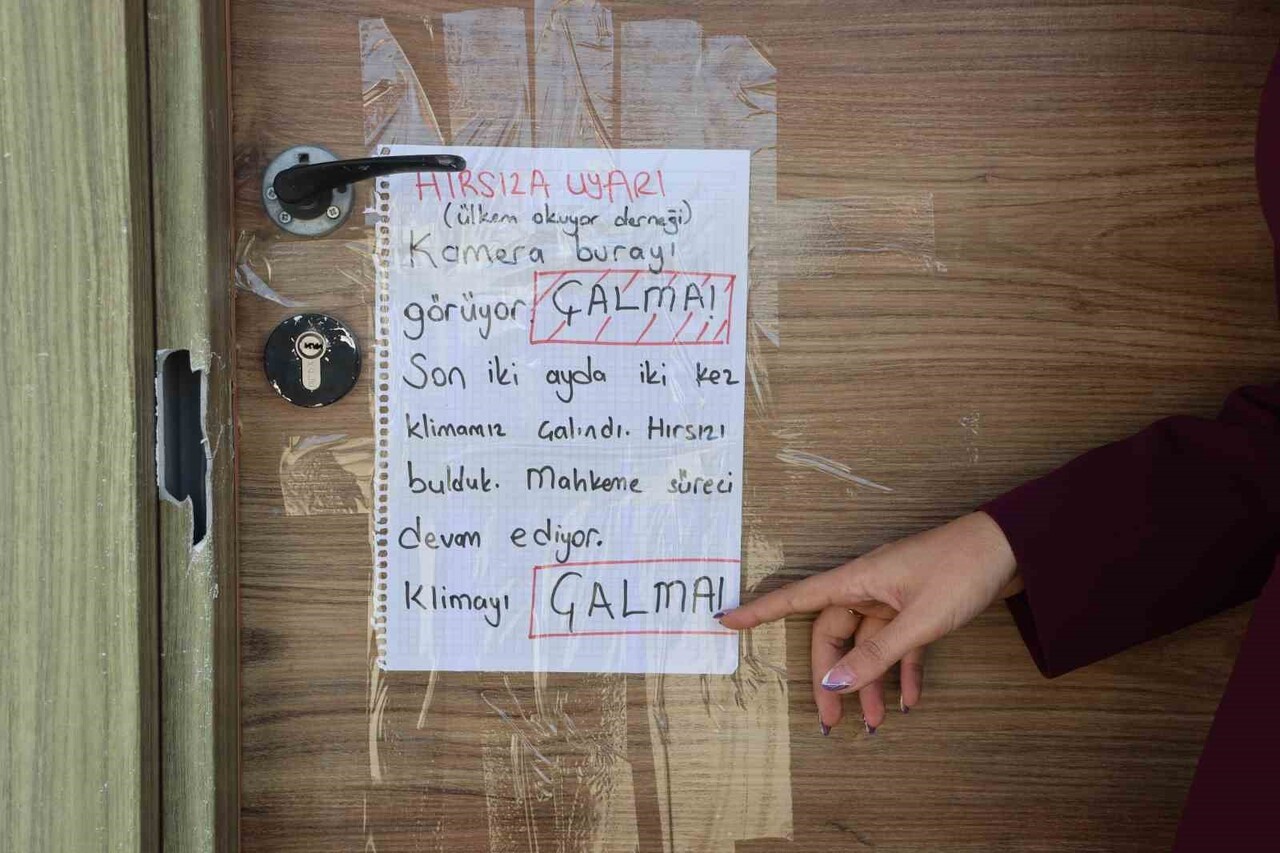 HIRSIZA UYARI
(ülkem okuyor derneği)
Kamera burayı
görüyor ÇALMA!
Son iki ayda iki kez
klimamız Çalındı. Hırsızı
bulduk. Mahkeme süreci
devam ediyor.
Klimayı ÇALMA!